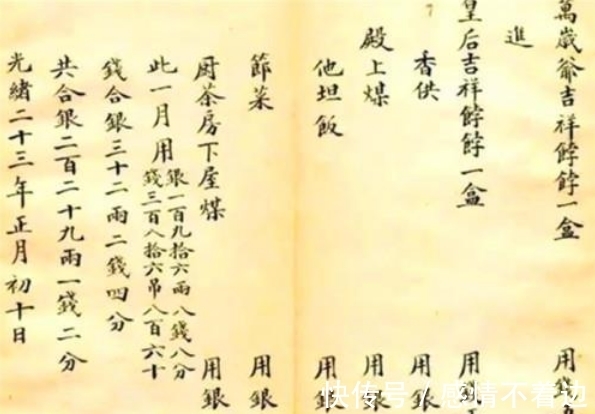 萬歲爺吉祥餑餑一盒 用
進
皇后吉祥餑餑一盒 用
香供
殿上煤 用銀
他坦飯 用銀
節菜 用銀
厨茶房下屋煤 用銀
此一月用 銀一百九拾六兩八錢八分 錢三百八拾六吊八百六十
錢合銀三十二兩二錢四分
共合銀二百二十九兩一錢二分
光緒二十三年正月初十日
快传号/感情不着边